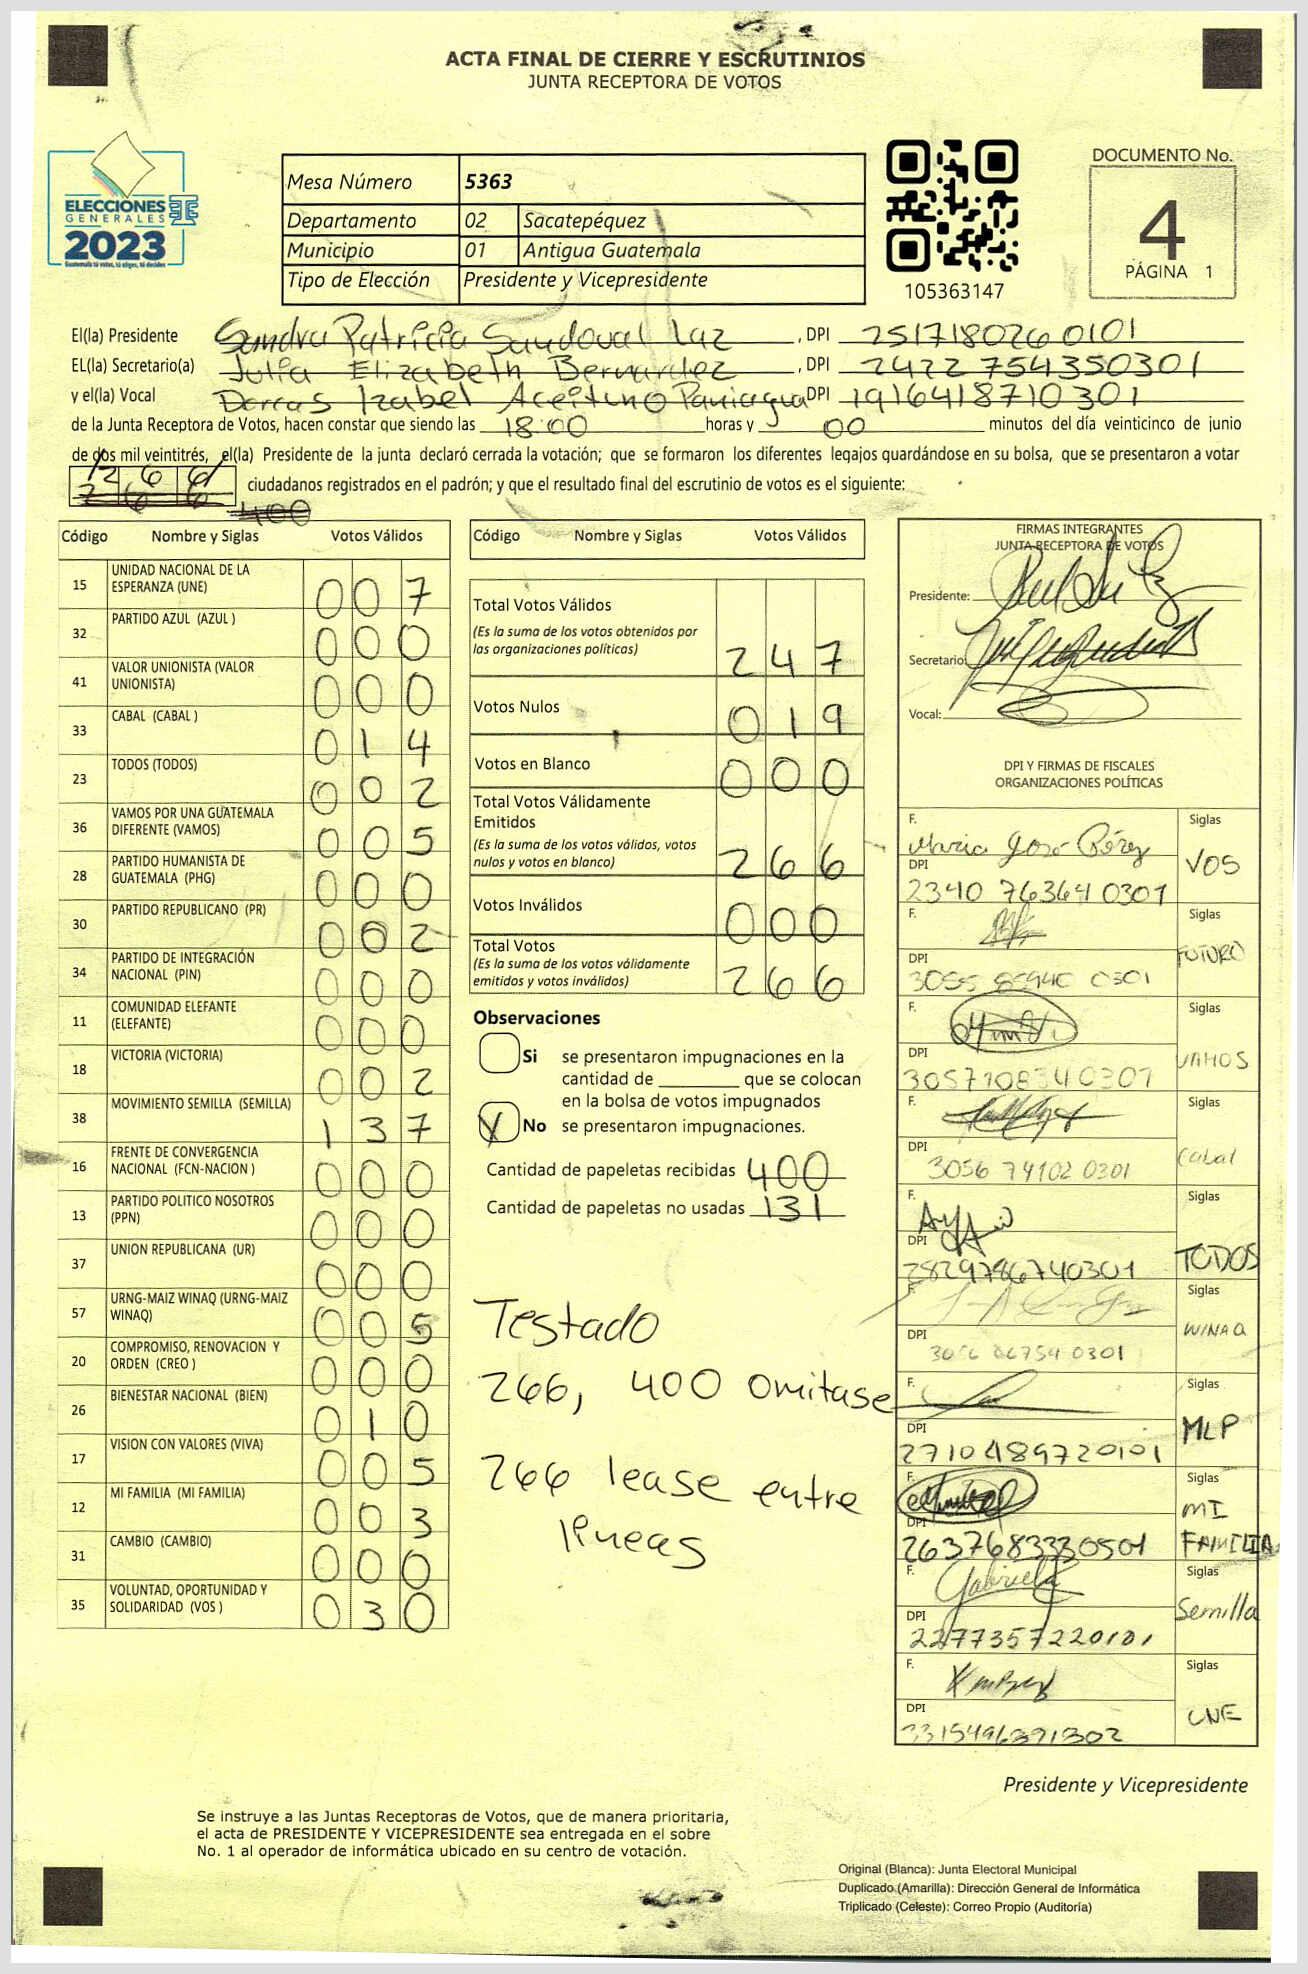 ACTA FINAL DE CIERRE Y ESCRUTINIOS
JUNTA RECEPTORA DE VOTOS
ELECCIONES
GENERALES
2023
Guatemala tú votas, tú eliges, tú decides
Mesa Número 5363
Departamento 02 Sacatepéquez
Municipio 01 Antigua Guatemala
Tipo de Elección Presidente y Vicepresidente
105363147
DOCUMENTO No.
4
PÁGINA 1
El(la) Presidente Sandra Patricia Sandoval Laz, DPI 2517180260101
EL(la) Secretario(a) Julia Elizabeth Bernardez, DPI 2422 754350301
y el(la) Vocal Dorcas Izabel Aceituno Paniagua DPI 1916418710301
de la Junta Receptora de Votos, hacen constar que siendo las 18:00 horas y 00 minutos del día veinticinco de junio
de dos mil veintitrés, el(la) Presidente de la junta declaró cerrada la votación; que se formaron los diferentes legajos quardándose en su bolsa, que se presentaron a votar
266 ciudadanos registrados en el padrón; y que el resultado final del escrutinio de votos es el siguiente:
400
Código Nombre y Siglas Votos Válidos
15 UNIDAD NACIONAL DE LA ESPERANZA (UNE) 007
32 PARTIDO AZUL (AZUL ) 000
41 VALOR UNIONISTA (VALOR UNIONISTA) 000
33 CABAL (CABAL ) 014
23 TODOS (TODOS) 002
36 VAMOS POR UNA GUATEMALA DIFERENTE (VAMOS) 005
28 PARTIDO HUMANISTA DE GUATEMALA (PHG) 000
30 PARTIDO REPUBLICANO (PR) 002
34 PARTIDO DE INTEGRACIÓN NACIONAL (PIN) 000
11 COMUNIDAD ELEFANTE (ELEFANTE) 000
18 VICTORIA (VICTORIA) 002
38 MOVIMIENTO SEMILLA (SEMILLA) 137
16 FRENTE DE CONVERGENCIA NACIONAL (FCN-NACION ) 000
13 PARTIDO POLITICO NOSOTROS (PPN) 000
37 UNION REPUBLICANA (UR) 000
57 URNG-MAIZ WINAQ (URNG-MAIZ WINAQ) 005
20 COMPROMISO, RENOVACION Y ORDEN (CREO ) 000
26 BIENESTAR NACIONAL (BIEN) 010
17 VISION CON VALORES (VIVA) 005
12 MI FAMILIA (MI FAMILIA) 003
31 CAMBIO (CAMBIO) 000
35 VOLUNTAD, OPORTUNIDAD Y SOLIDARIDAD (VOS ) 030
Código Nombre y Siglas Votos Válidos
Total Votos Válidos
(Es la suma de los votos obtenidos por
las organizaciones políticas) 247
Votos Nulos 019
Votos en Blanco 000
Total Votos Válidamente
Emitidos
(Es la suma de los votos válidos, votos
nulos y votos en blanco) 266
Votos Inválidos 000
Total Votos
(Es la suma de los votos válidamente
emitidos y votos inválidos) 266
Observaciones
Si se presentaron impugnaciones en la
cantidad de ________ que se colocan
en la bolsa de votos impugnados
X No se presentaron impugnaciones.
Cantidad de papeletas recibidas 400
Cantidad de papeletas no usadas 131
Testado
266, 400 Omitase
266 lease entre
lineas
FIRMAS INTEGRANTES
JUNTA RECEPTORA DE VOTOS
Presidente:
Secretario:
Vocal:
DPI Y FIRMAS DE FISCALES
ORGANIZACIONES POLÍTICAS
F. Maria José Pérez Siglas
DPI 2340 763641 0301 VOS
F. Siglas
DPI 0301 FUTURO
F. Siglas
DPI 3057108340301 VAMOS
F. Siglas
DPI 3056 74102 0301 Cabal
F. Siglas
DPI 2829786740301 TODOS
F. Siglas
DPI 3056 06754 0301 WINAQ
F. Siglas
DPI 2710489720101 MLP
F. Siglas
DPI 2637683330501 MI FAMILIA
F. Gabriela Siglas
DPI 2277357220101 Semilla
F. Siglas
DPI 3315496391302 UNE
Presidente y Vicepresidente
Se instruye a las Juntas Receptoras de Votos, que de manera prioritaria,
el acta de PRESIDENTE Y VICEPRESIDENTE sea entregada en el sobre
No. 1 al operador de informática ubicado en su centro de votación.
Original (Blanca): Junta Electoral Municipal
Duplicado (Amarilla): Dirección General de Informática
Triplicado (Celeste): Correo Propio (Auditoría)